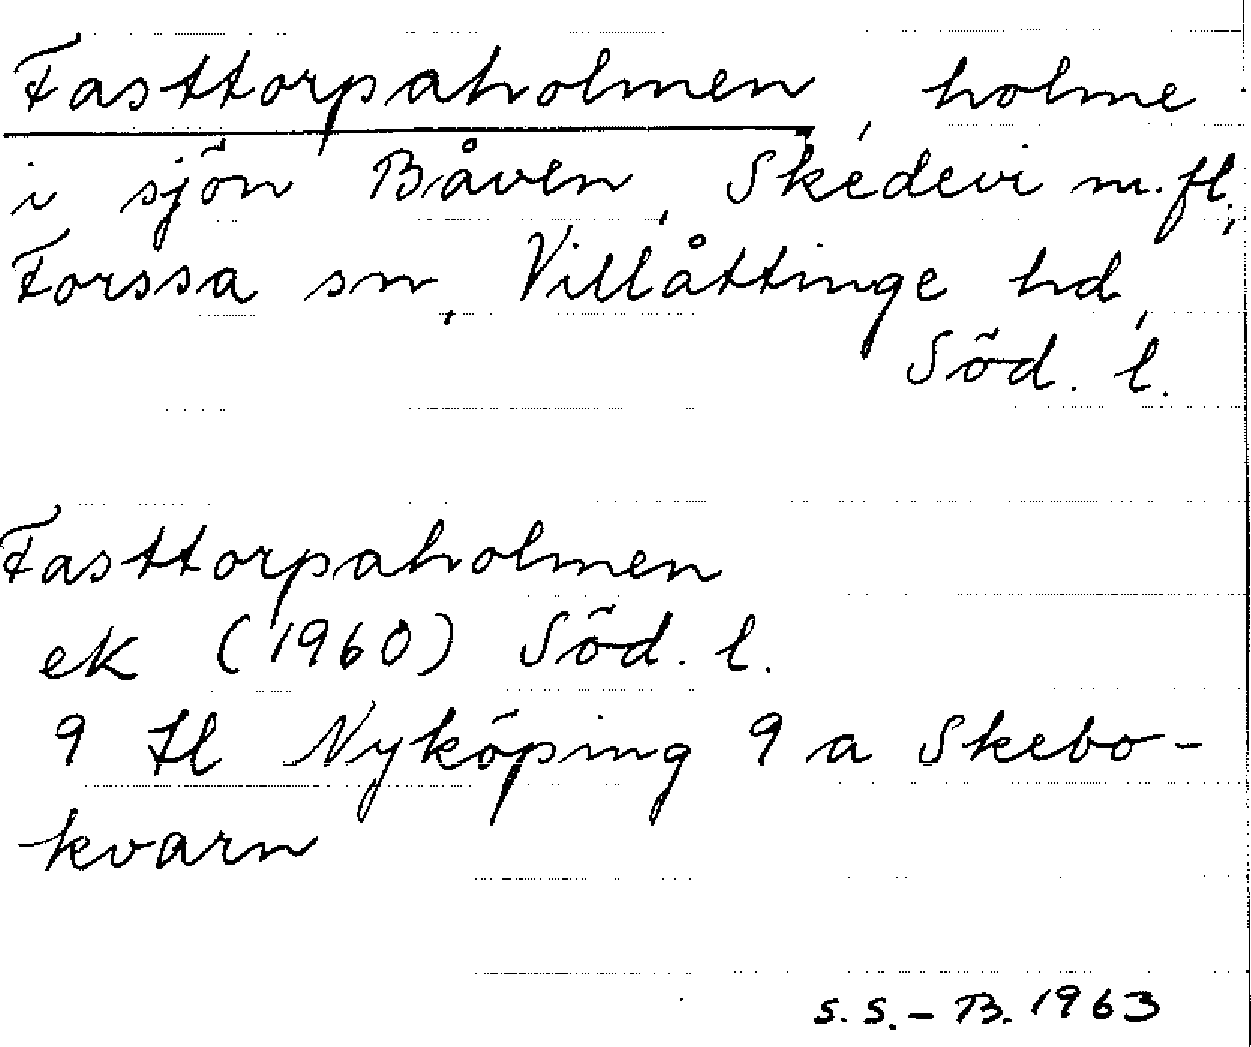 Fasttorpaholmen, holme
i sjön Båven, Skedevi m.fl.,
Forssa sn, Villåttinge hd,
Söd. l.
Fasttorpaholmen
ek (1960) Söd. l.
9 H Nyköping 9 a Skebo-
kvarn
S. S. – B. 1963